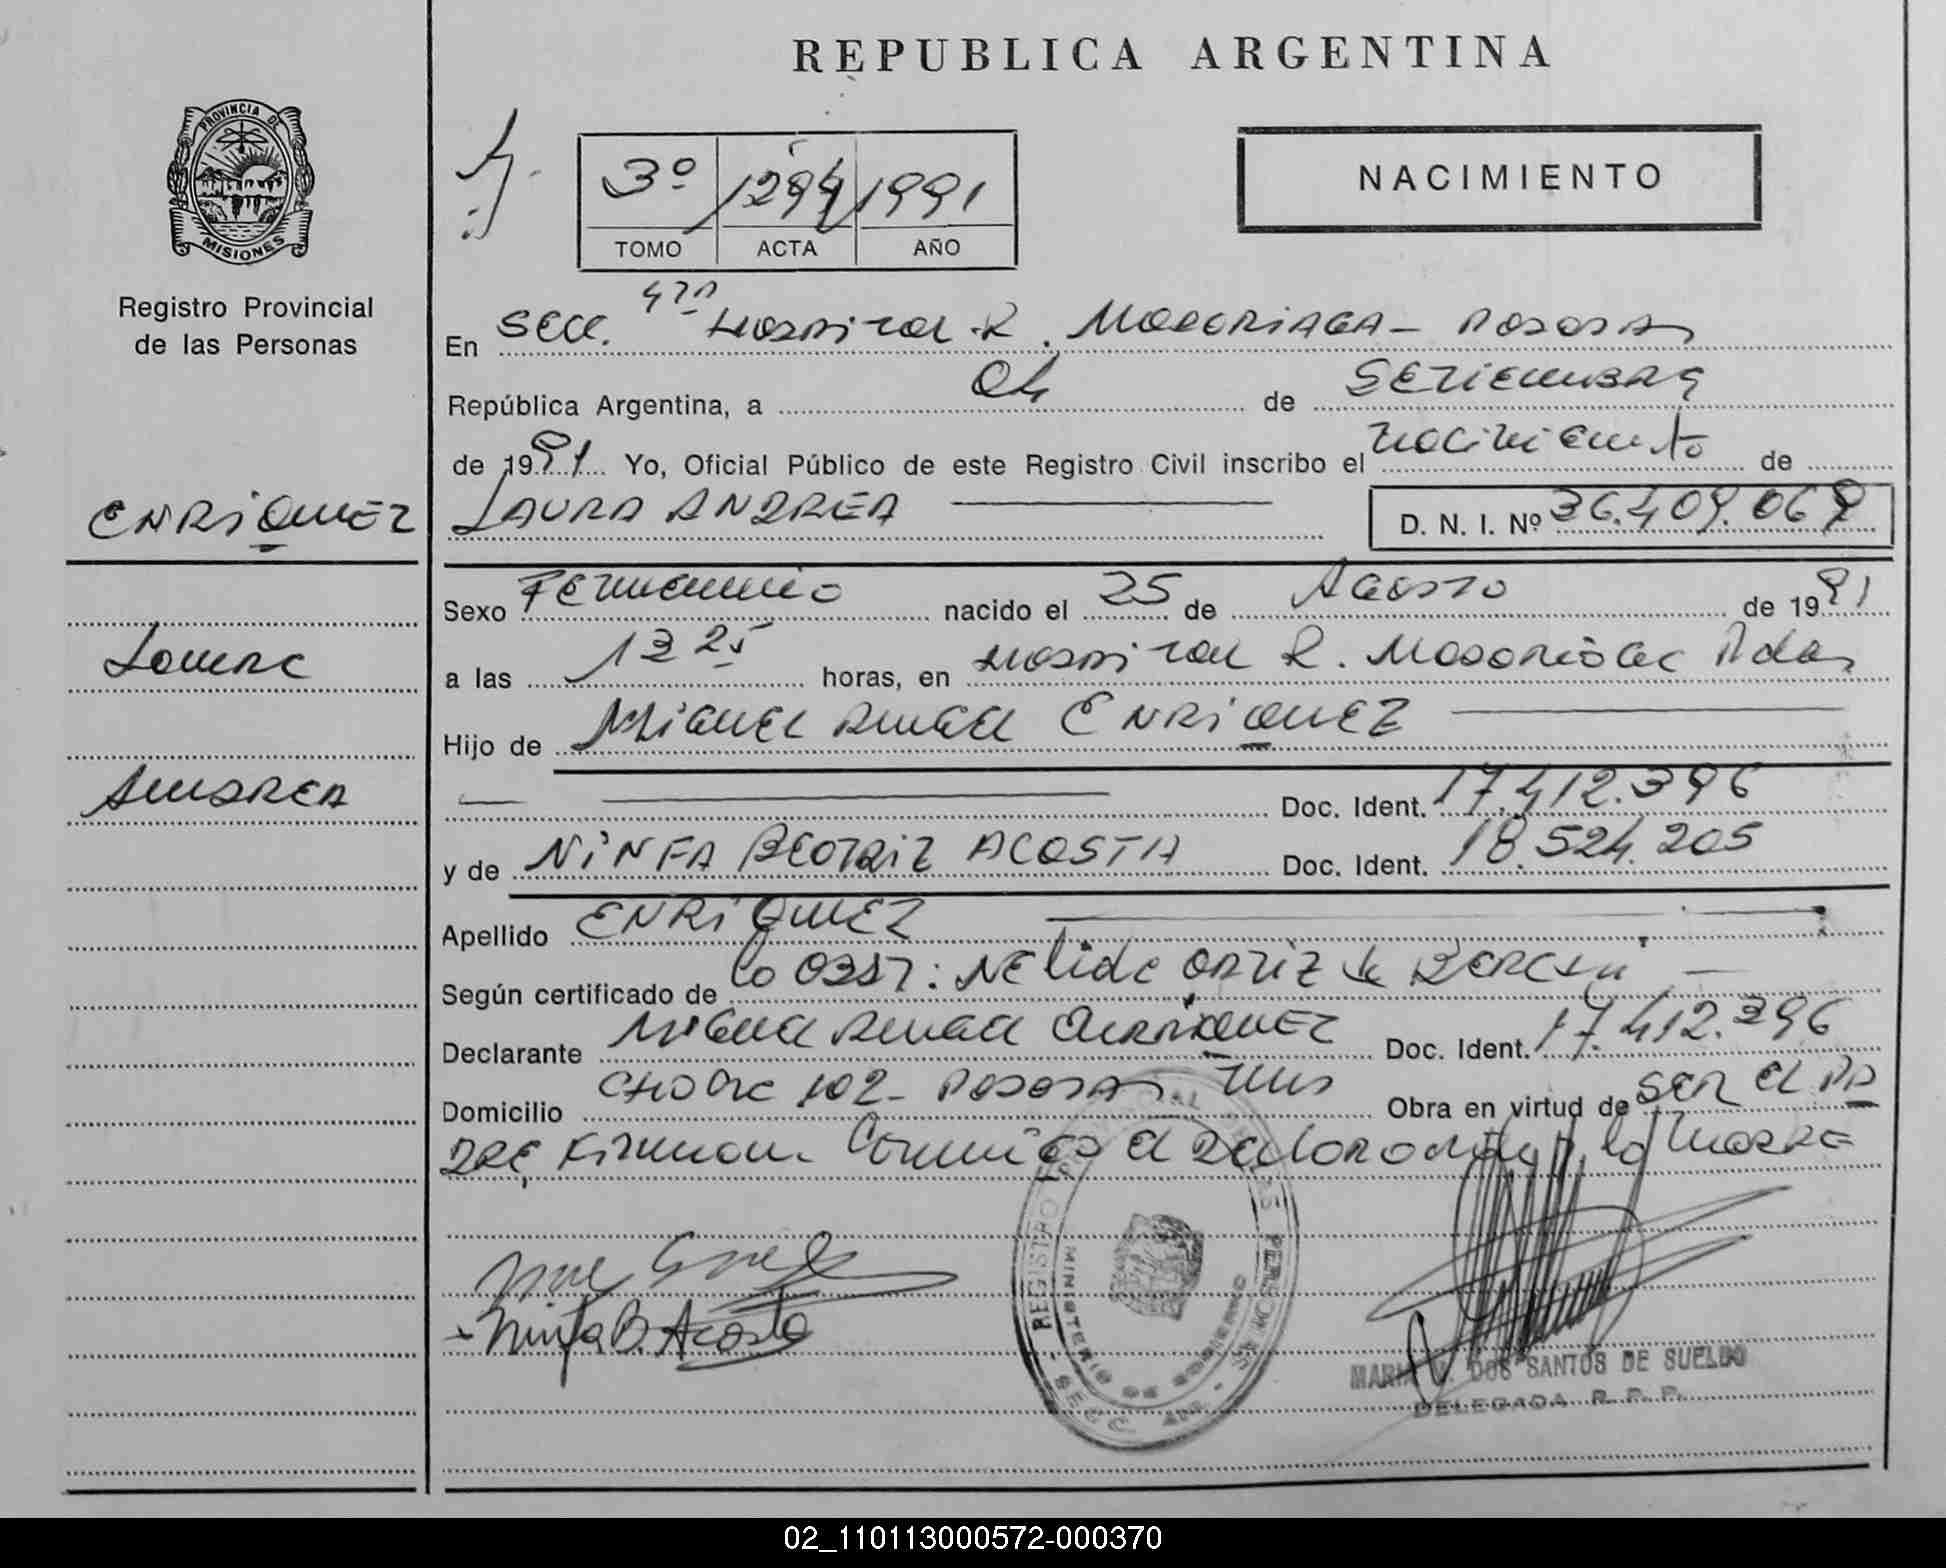 REPUBLICA ARGENTINA
PROVINCIA DE
MISIONES
Registro Provincial
de las Personas
3º 1294 1991
TOMO ACTA AÑO
NACIMIENTO
En Secc. 4ta Hospital R. MADARIAGA - POSADAS
República Argentina, a 04 de SETIEMBRE
de 1991 Yo, Oficial Público de este Registro Civil inscribo el nacimiento de
ENRIQUEZ
LAURA ANDREA
D. N. I. Nº 36.409.069
Sexo Femenino nacido el 25 de Agosto de 1991
Laura
a las 13 25 horas, en Hospital R. Madariaga Pdas
Hijo de MIGUEL ANGEL ENRIQUEZ
Andrea
Doc. Ident. 17.412.396
y de NINFA BEATRIZ ACOSTA Doc. Ident. 18.524.205
Apellido ENRIQUEZ
Según certificado de la OBST: NElida ORTIZ de
Declarante Miguel Angel ENRIQUEZ Doc. Ident. 17.412.396
Domicilio 102 - POSADAS Mns Obra en virtud de SER El PA
DRE, Firman el Declarante y la MADRE
Ninfa B. Acosta
REGISTRO PROVINCIAL DE LAS PERSONAS
MINISTERIO DE GOBIERNO
SECC.
MARIA DOS SANTOS DE SUELDO
DELEGADA R. P. P.
02_110113000572-000370